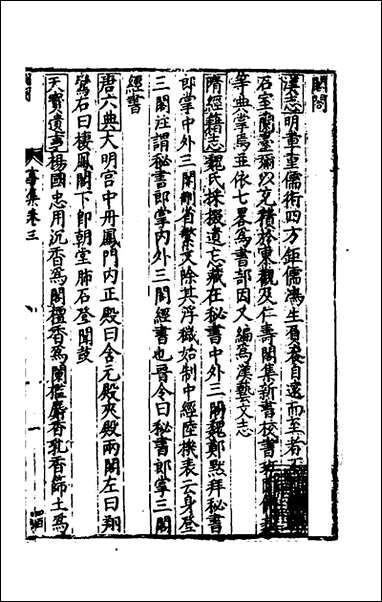 閣門
漢志明章重儒術四方鉅儒鴻生負袠自遠而至者
石室蘭臺彌以充積於東觀及仁壽閣集新書校書班固傅
等典掌焉並依七畧爲書部固又編爲漢藝文志
隋經籍志魏氏採掇遺忘藏在秘書中外三閣魏鄭黙拜秘書
郎掌中外三閣刪省繁文除其浮穢始制中經陸機表云身登
三閣註謂秘書郎掌内外三閣經書也晉令曰秘書郎掌三閣
經書
唐六典大明宫中丹鳳門内正殿曰含元殿夾殿兩閣左曰翔
鸞右曰棲鳳閣下即朝堂肺石登聞鼓
天寳遺事楊國忠用沉香爲閣檀香爲闌檻麝香乳香篩土爲
事集卷三